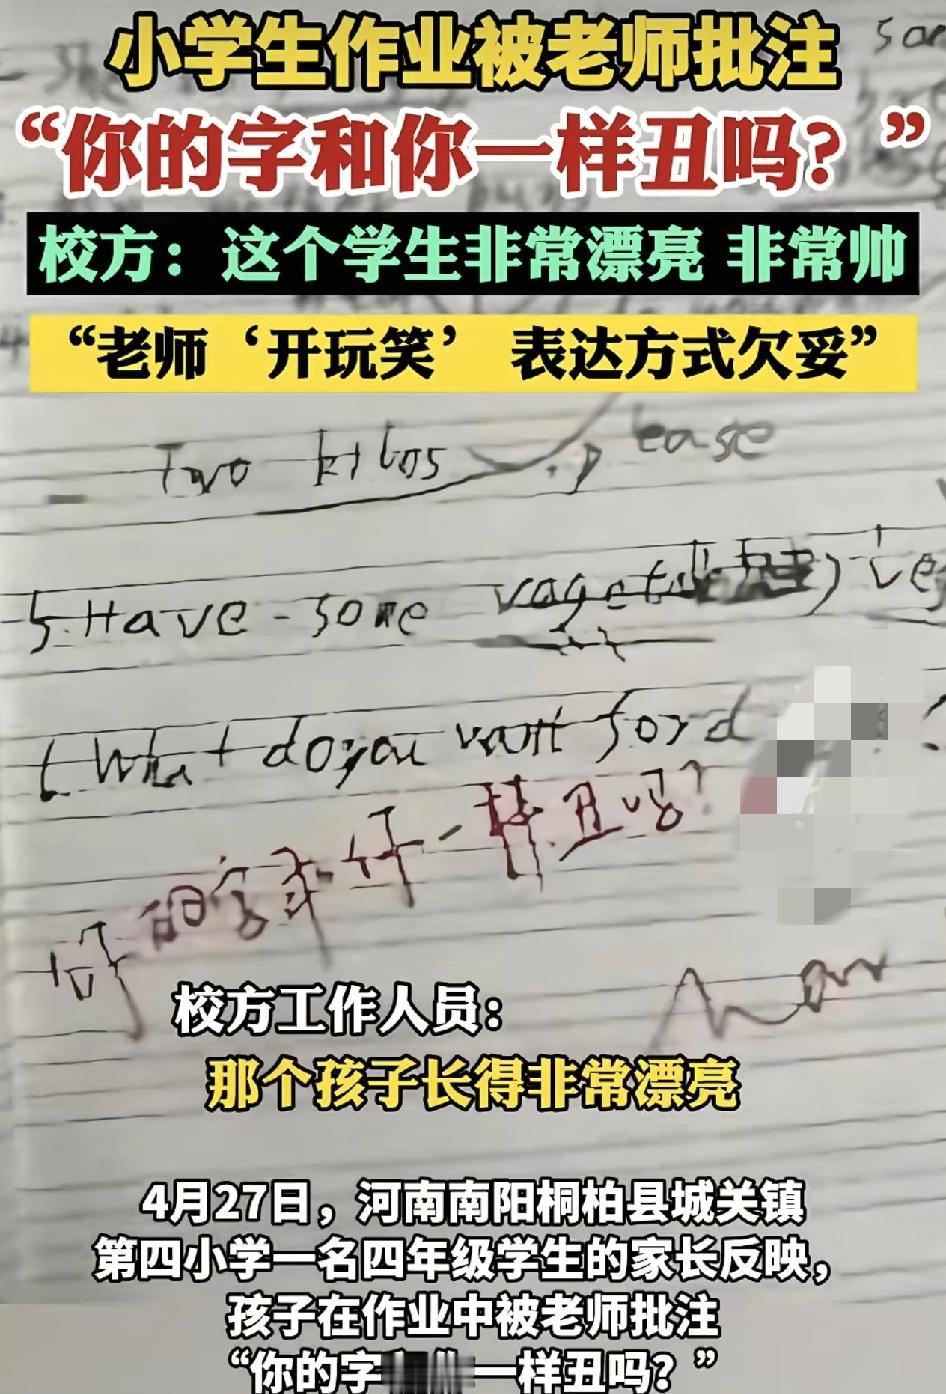 小学生作业被老师批注
“你的字和你一样丑吗？”
校方：这个学生非常漂亮 非常帅
“老师‘开玩笑’ 表达方式欠妥”
Two kilos
, Please
5. Have - some vaget
( What do you want for d
你的字和你一样丑吗?
校方工作人员：
那个孩子长得非常漂亮
4月27日，河南南阳桐柏县城关镇
第四小学一名四年级学生的家长反映，
孩子在作业中被老师批注
“你的字 一样丑吗？”